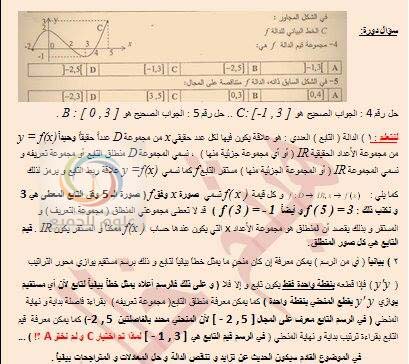 سؤال دورة:
في الشكل المجاور :
C الخط البياني للدالة f
4- مجموعة قيم الدالة f هي:
]-2,5[ D ]-1,3] C ]-2,5] B ]-1,3[ A
5- في الشكل السابق ذاته، الدالة f متناقصة على المجال:
]-2,3] D [3,5[ C [0,3] B [0,4] A
حل رقم 4 : الجواب الصحيح هو C :]-1 , 3 ] .. حل رقم 5 : الجواب الصحيح هو B : [ 0 , 3 ] .
لنتعلم : ١) الدالة ( التابع ) العددي : هو علاقة يكون فيها لكل عدد حقيقي x من مجموعة D عدداً حقيقياً وحيداً y = f(x)
من مجموعة الأعداد الحقيقية IR ( أو أي مجموعة جزئية منها ) ، نسمي المجموعة D منطلق التابع أو مجموعة تعريفه و
نسمي المجموعة IR ( أو المجموعة الجزئية منها ) مستقر التابع كما نسمي y = f(x) علاقة ربط التابع و يرمز لذلك
كما يلي : و كل قيمة f(x) تسمى صورة x وفق f ( صورة الـ 5 وفق التابع المعطى هي 3
و نكتب ذلك : f ( 5 ) = 3 و أيضاً f ( 3 ) = -1 ) قد لا تعطى مجموعتي المنطلق ( مجموعة التعريف ) و
المستقر و بذلك يقصد أن المنطلق هو مجموعة الأعداد x التي يكون عندها حساب f(x) ممكناً و المستقر يكون IR . قيم
التابع هي كل صور المنطلق.
٢ ) بيانياً ( أي من رسم معطى ) يمكن معرفة إن كان منحنٍ ما يمثل خطاً بيانياً لتابع و ذلك برسم مستقيم يوازي محور التراتيب
( y'y ) فإذا قطعه بنقطة واحدة فقط يكون تابع و إلا فلا ( و على ذلك فالرسم أعلاه يمثل خطاً بيانياً لتابع لأن أي مستقيم
يوازي y'y يقطع المنحني بنقطة واحدة ) كما يمكن معرفة منطلق التابع (مجموعة تعريفه) بقراءة فاصلة بداية و نهاية
المنحني ( في الرسم التابع معرف على المجال ] 5 , 2- [ لأن المنحني محدد بالفاصلتين 5 , 2- ) كما يمكن معرفة قيم
التابع بقراءة ترتيب بداية و نهاية المنحني ( في الرسم قيم التابع هي ] 3 , 1- ] لماذا تم اختيار C و لم نختر A ؟! )
في موضوع القادم سيكون الحديث عن تزايد و تناقص الدالة و حل المعادلات و المتراجحات بيانياً .